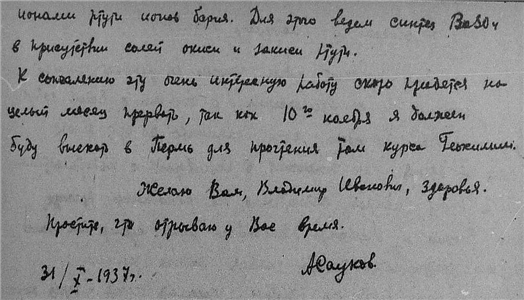 ионами ртути ионов бария. Для этого ведем синтез BaSO4
в присутствии солей окиси и закиси ртути.
К сожалению эту очень интересную работу скоро придется на
целый месяц прервать, так как 10го ноября я должен
буду выехать в Пермь для прочтения там курса Геохимии.
Желаю Вам, Владимир Иванович, здоровья.
Простите, что отрываю у Вас время.
31/X-1937г. АСауков